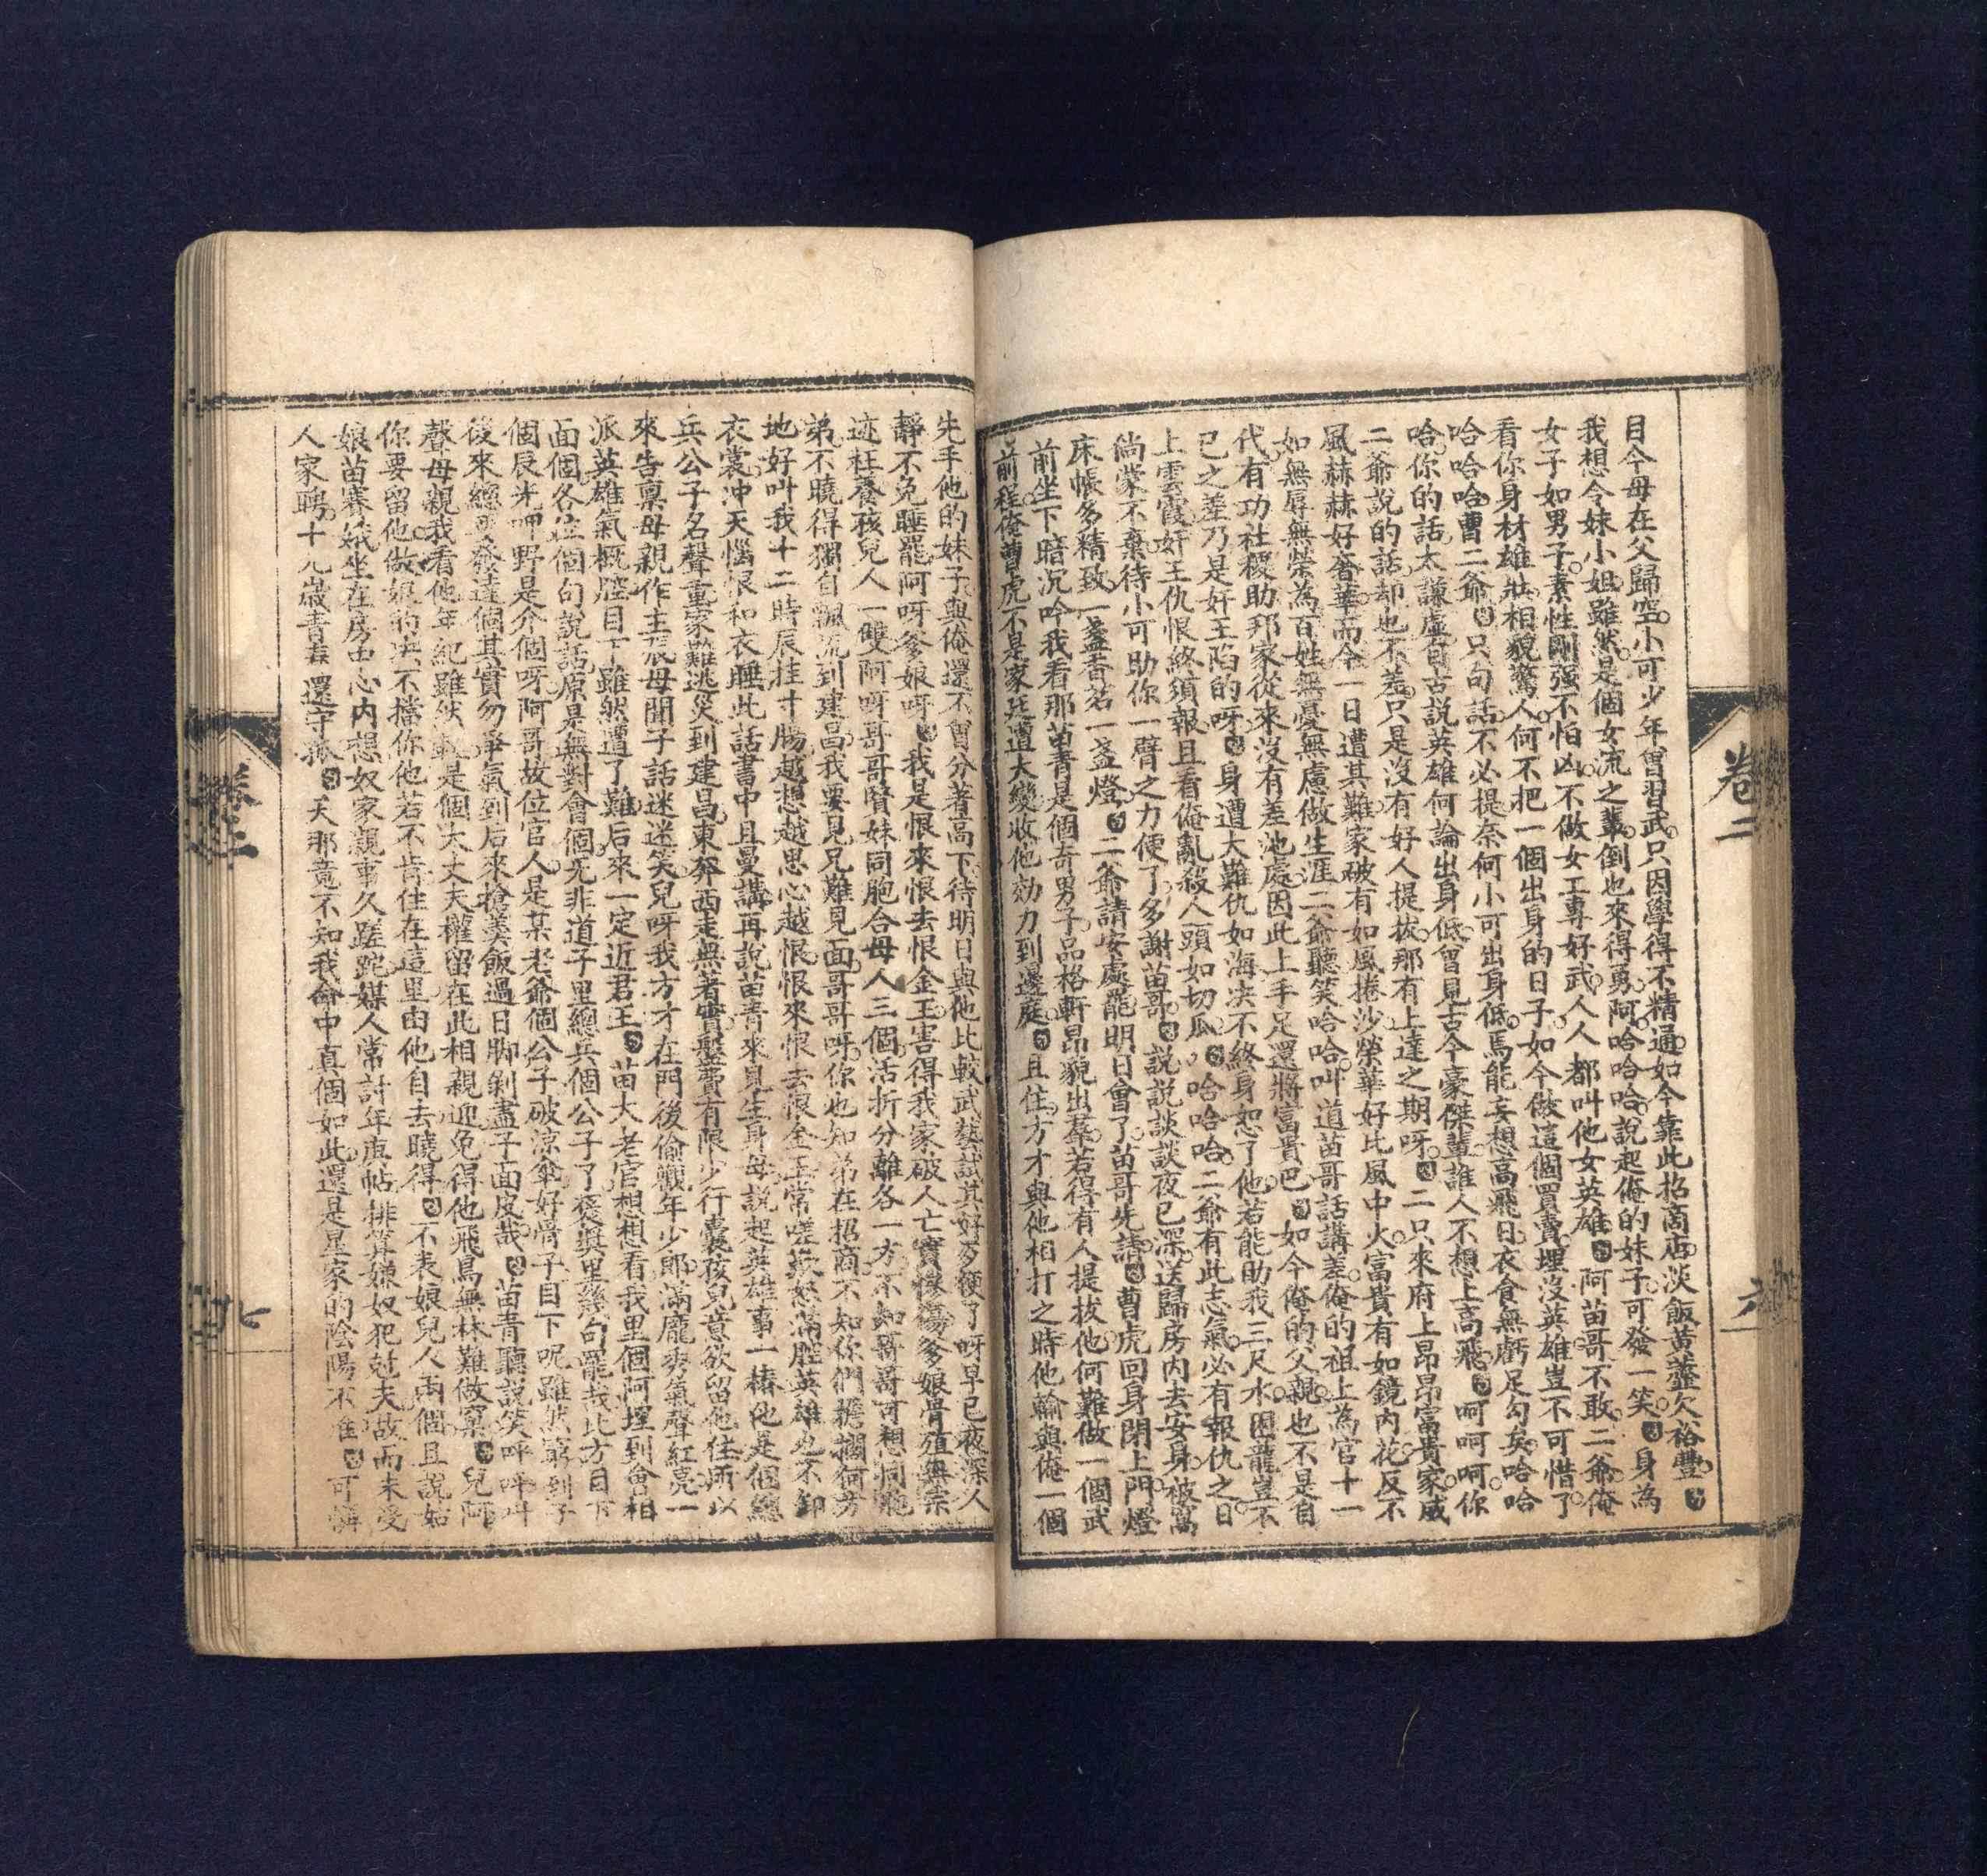 卷二
六
目今母在父歸空小可少年曾習武只因學得不精通如今靠此招商店淡飯黃虀欠裕豐
身為我想令妹小姐雖然是個女流之輩倒也來得勇阿哈哈哈說起俺的妹子可發一笑
女子如男子素性剛强不怕凶不做女工專好武人人都叫他女英雄阿苗哥不敢二爺俺
看你身材雄壯相貌驚人何不把一個出身的日子如今做這個買賣埋沒英雄豈不可惜了
哈哈哈曹二爺只句話不必提奈何小可出身低焉能妄想高飛日衣食無虧足勾矣哈哈
哈你的話太謙虛自古說英雄何論出身低曾見古今豪傑輩誰人不想上高飛呵呵呵你
二爺說的話却也不差只是沒有好人提拔那有上達之期呀二只來府上昂昂富貴家威
風赫赫好奢華而今一日遭其難家破有如風捲沙榮華好比風中火富貴有如鏡內花反不
如無辱無榮為百姓無憂無慮做生涯二爺聽笑哈哈叫道苗哥話講差俺的祖上為官十一
代有功社稷助邦家從來沒有差池處因此上手足還將富貴巴如今俺的父親也不是自
己之差乃是奸王陷的呀身遭大難仇如海決不終身恕了他若能助我三尺水困龍豈不
上雲霞奸王仇恨終須報且看俺亂殺人頭如切瓜哈哈哈二爺有此志氣必有報仇之日
倘蒙不棄待小可助你一臂之力便了多謝苗哥說說談談夜已深送歸房內去安身被窩
床帳多精致一盞香茗一盞燈二爺請安處罷明日會了苗哥先請曹虎回身閉上門燈
前坐下暗沉吟我看那苗青是個奇男子品格軒昂貌出羣若得有人提拔他何難做一個武
前程俺曹虎不是家廷遭大變收他効力到邊庭且住方才與他相打之時他輸與俺一個
先手他的妹子與俺還不曾分著高下待明日與他比較武藝試其好歹便了呀早已夜深人
靜不免睡罷阿呀爹娘呀我是恨來恨去恨金王害得我家破人亡實慘傷爹娘骨殖無
迹枉養孩兒人一雙阿呀哥哥賢妹同胞合母人三個活折分離各一方不知哥哥可想同胞
弟不曉得獨自飄流到建昌我要見兄難見面哥哥呀你也知弟在招商不知你們擔擱何方
地好叫我十二時辰挂寸腸越想越思心越恨恨來恨去恨金王常嗟嘆怒滿腔英雄也不卸
衣裳冲天惱恨和衣睡此話書中且曼講再說苗青來見生身母說起英雄事一樁他是個總
兵公子名聲重家難逃災到建昌東奔西走無著實盤費有限少行囊孩兒意欲留他住所以
來告禀母親作主張母聞子話迷迷笑兒呀我方才在門後偷覷年少郎滿龐爽氣聲紅亮一
派英雄氣概腔目下雖然遭了難后來一定近君王苗大老官想想看我里個阿埋到會相
面個各位個句說話原是無對會個旡非道子里總兵個公子了
個辰光呷野是介個呀阿哥故位官人是某老爺個公子破凉傘好骨子目下呢雖然窮到子
後來總要發達個其實勿爭氣到后來搶羹飯過日脚剝盡子面皮哉苗青聽說笑呼呼叫
聲母親我看他年紀雖然輕是個大丈夫權留在此相親迎免得他飛鳥無林難做窠兒阿
你要留他做娘的決不擋你他若不肯住在這里由他自去曉得不表娘兒人兩個且說姑
娘苗賽娥坐在房中心內想奴家親事久蹉跎媒人常討年庚帖排算嫌奴犯尅夫故而未受
人家聘十九歲青春還守孤天那竟不知我命中真個如此還是星家的陰陽不准可憐
卷二
七